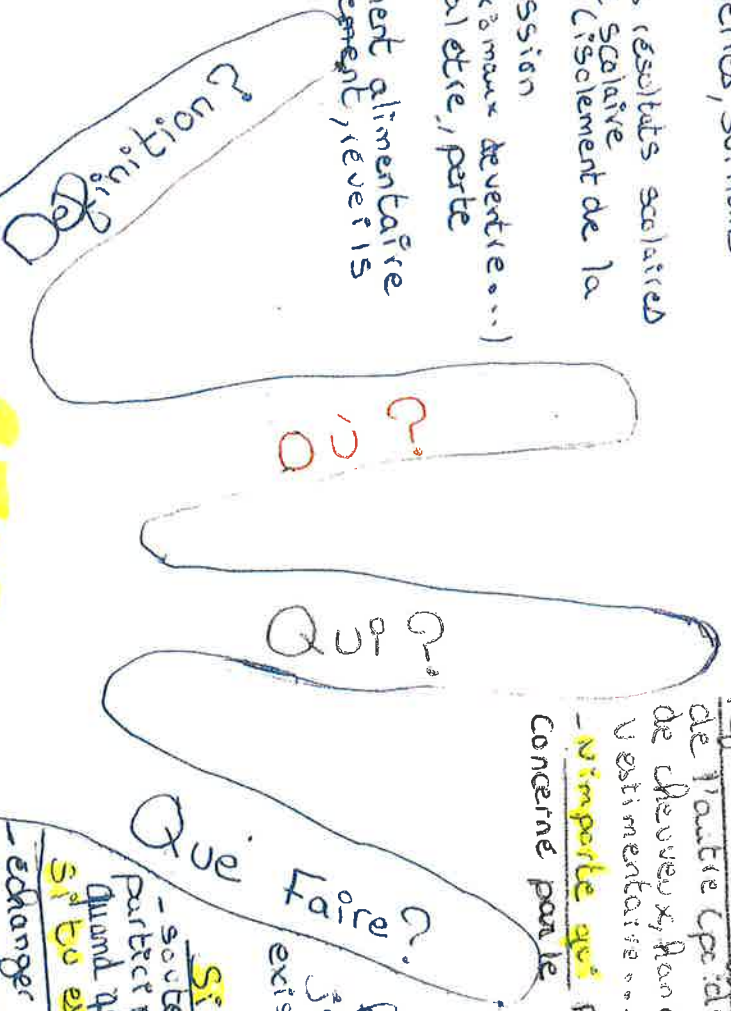 résultats scolaires
scolaire
(isolement de la
ssion
maux de ventre...)
al être, perte
ent alimentaire
ement, réveils
Définition ?
Où ?
Qui ?
Que Faire ?
de l'autre (poids
de cheveux, han
vestimentaire...
- N'importe qui p
concerné par le
exis
Si
- soute
partici
quand
Si tu es
- échanger